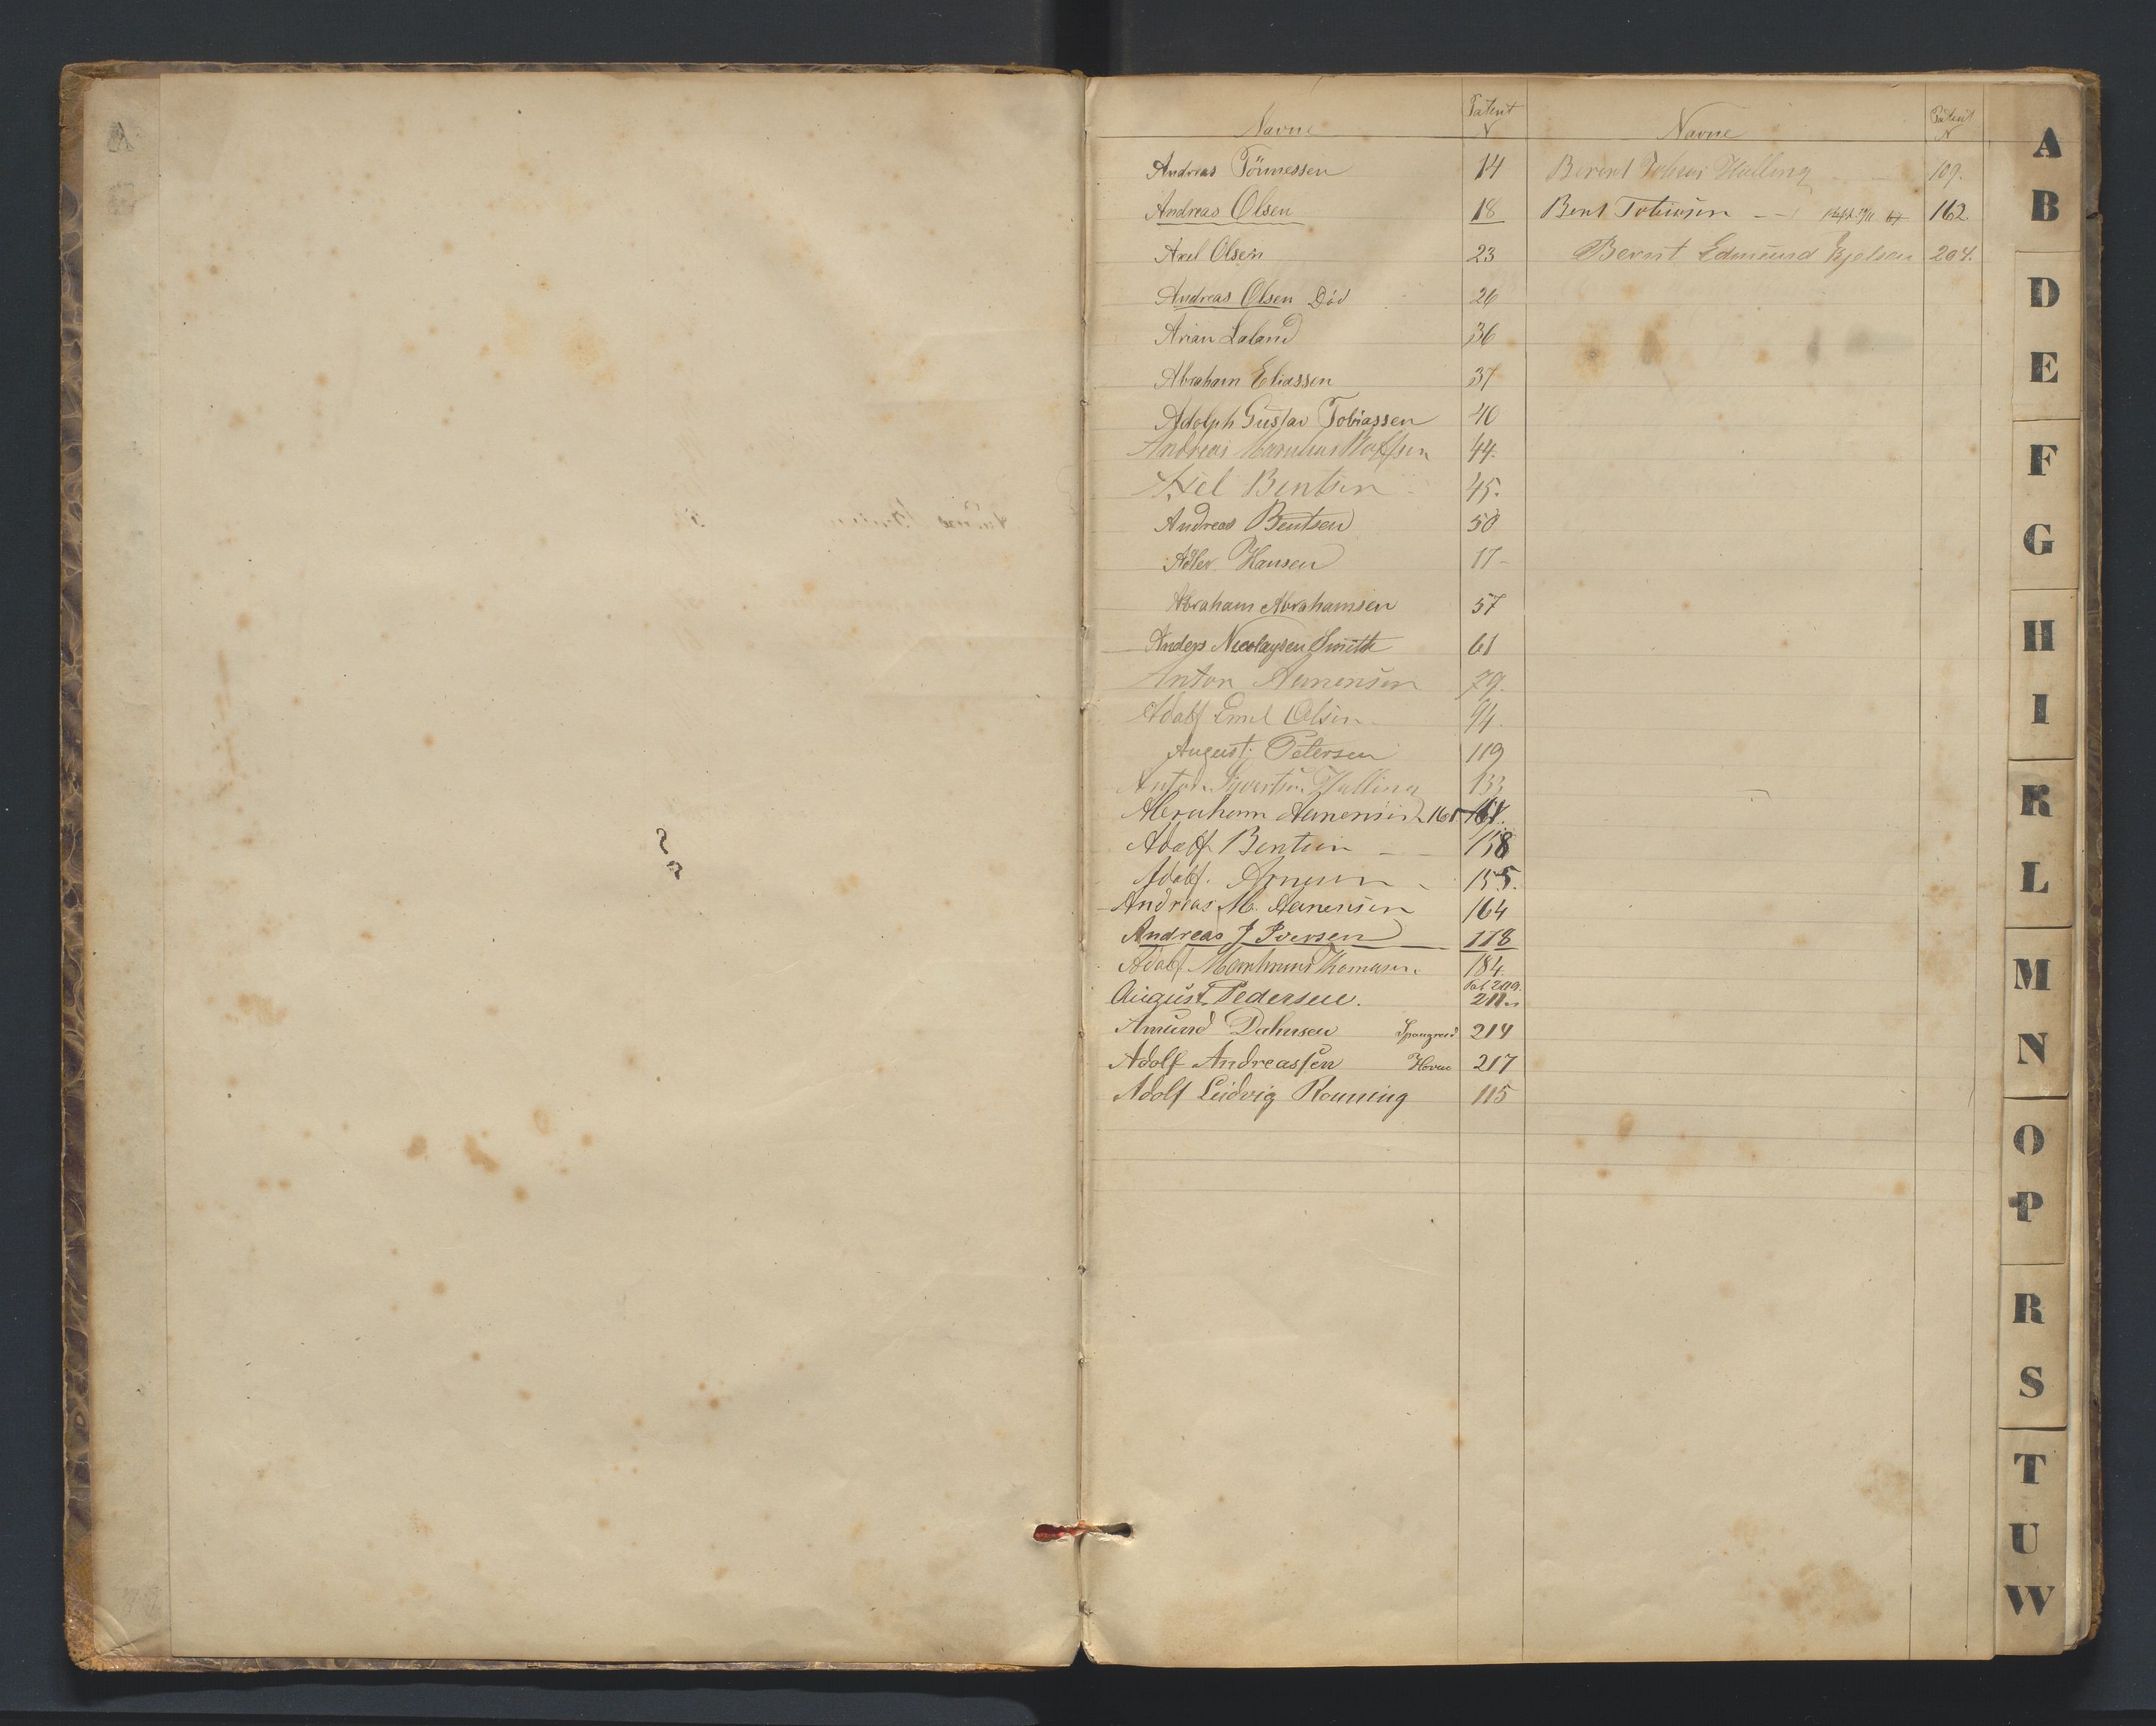 Navne Patent N Navne Patent N
Andreas Tönnessen 14
Andreas Olsen 18
Axel Olsen 23
Andreas Olsen Död 26
Arian Laland 36
Abraham Eliassen 37
Adolph Gustav Tobiassen 40
Andreas 44.
Axel Bentsen 45.
Andreas Bentsen 50
Adler Hansen 17-
Abraham Abrahamsen 57
Anders Nicolaysen Smith 61
Anton Aanensen 79.
Adolf Emil Olsen 94.
August Petersen 119
Anton Sivertsen Hulling 133
Abraham Aanensen 161
Adolf Bentsen 158
Adolf. 155.
Andreas M. Aanensen 164
Andreas J Iversen 178
Adolf Thomasen 184.
August Pedersen. 211
Amund Dahnsen Spangreid 214
Adolf Andreassen 217
Adolf Ludvig Ronning 115
Berent Tobias Hulling 109.
Bent Tobiasen 162.
Bernt Edmund 204.
A
B
D
E
F
G
H
I
K
L
M
N
O
P
R
S
T
U
W